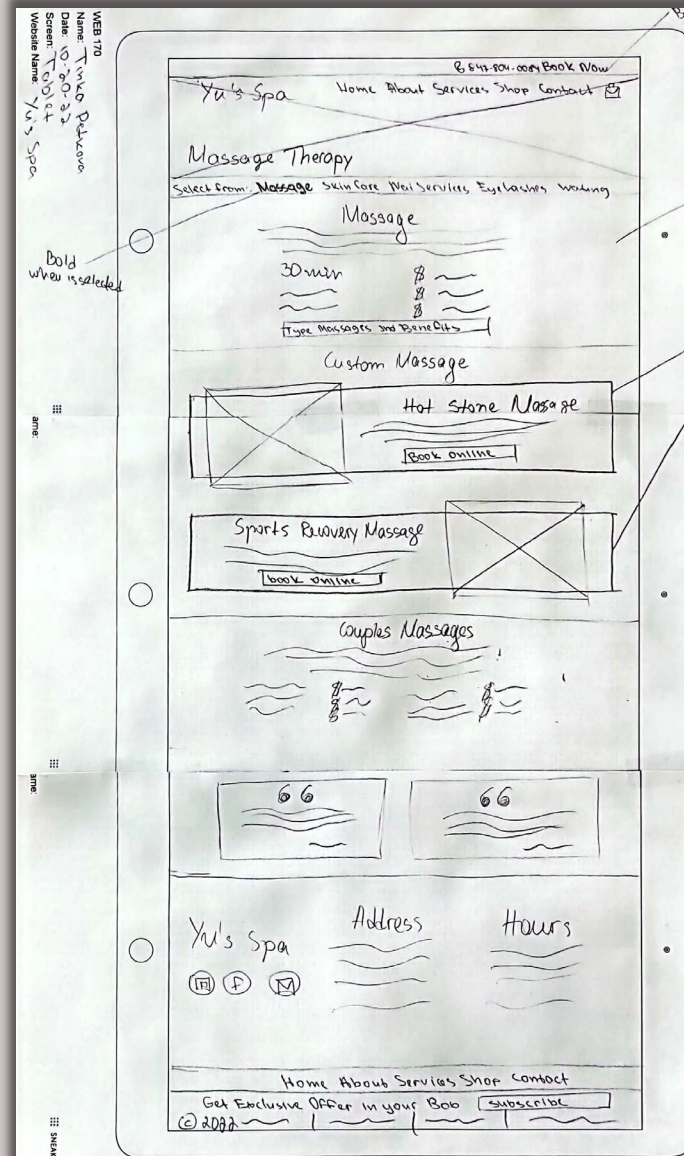 WEB 170
Name: Tinka Petkova
Date: 10-20-22
Screen: Tablet
Website Name: Yu's Spa
Book Now
Yu's Spa
Home About Services Shop Contact
Massage Therapy
Select from: Massage Skin Care Nail Services Eyelashes Waxing
Bold
when is selected
Massage
30 min $
$
$
Type Massages and Benefits
Custom Massage
Hot Stone Massage
Book online
Sports Recovery Massage
book online
Couples Massages
$ $
$ $
$ $
66 66
Yu's Spa
Address
Hours
f
Home About Services Shop Contact
Get Exclusive Offer in your Bob subscribe
© 2022
ame:
ame:
SNEAK